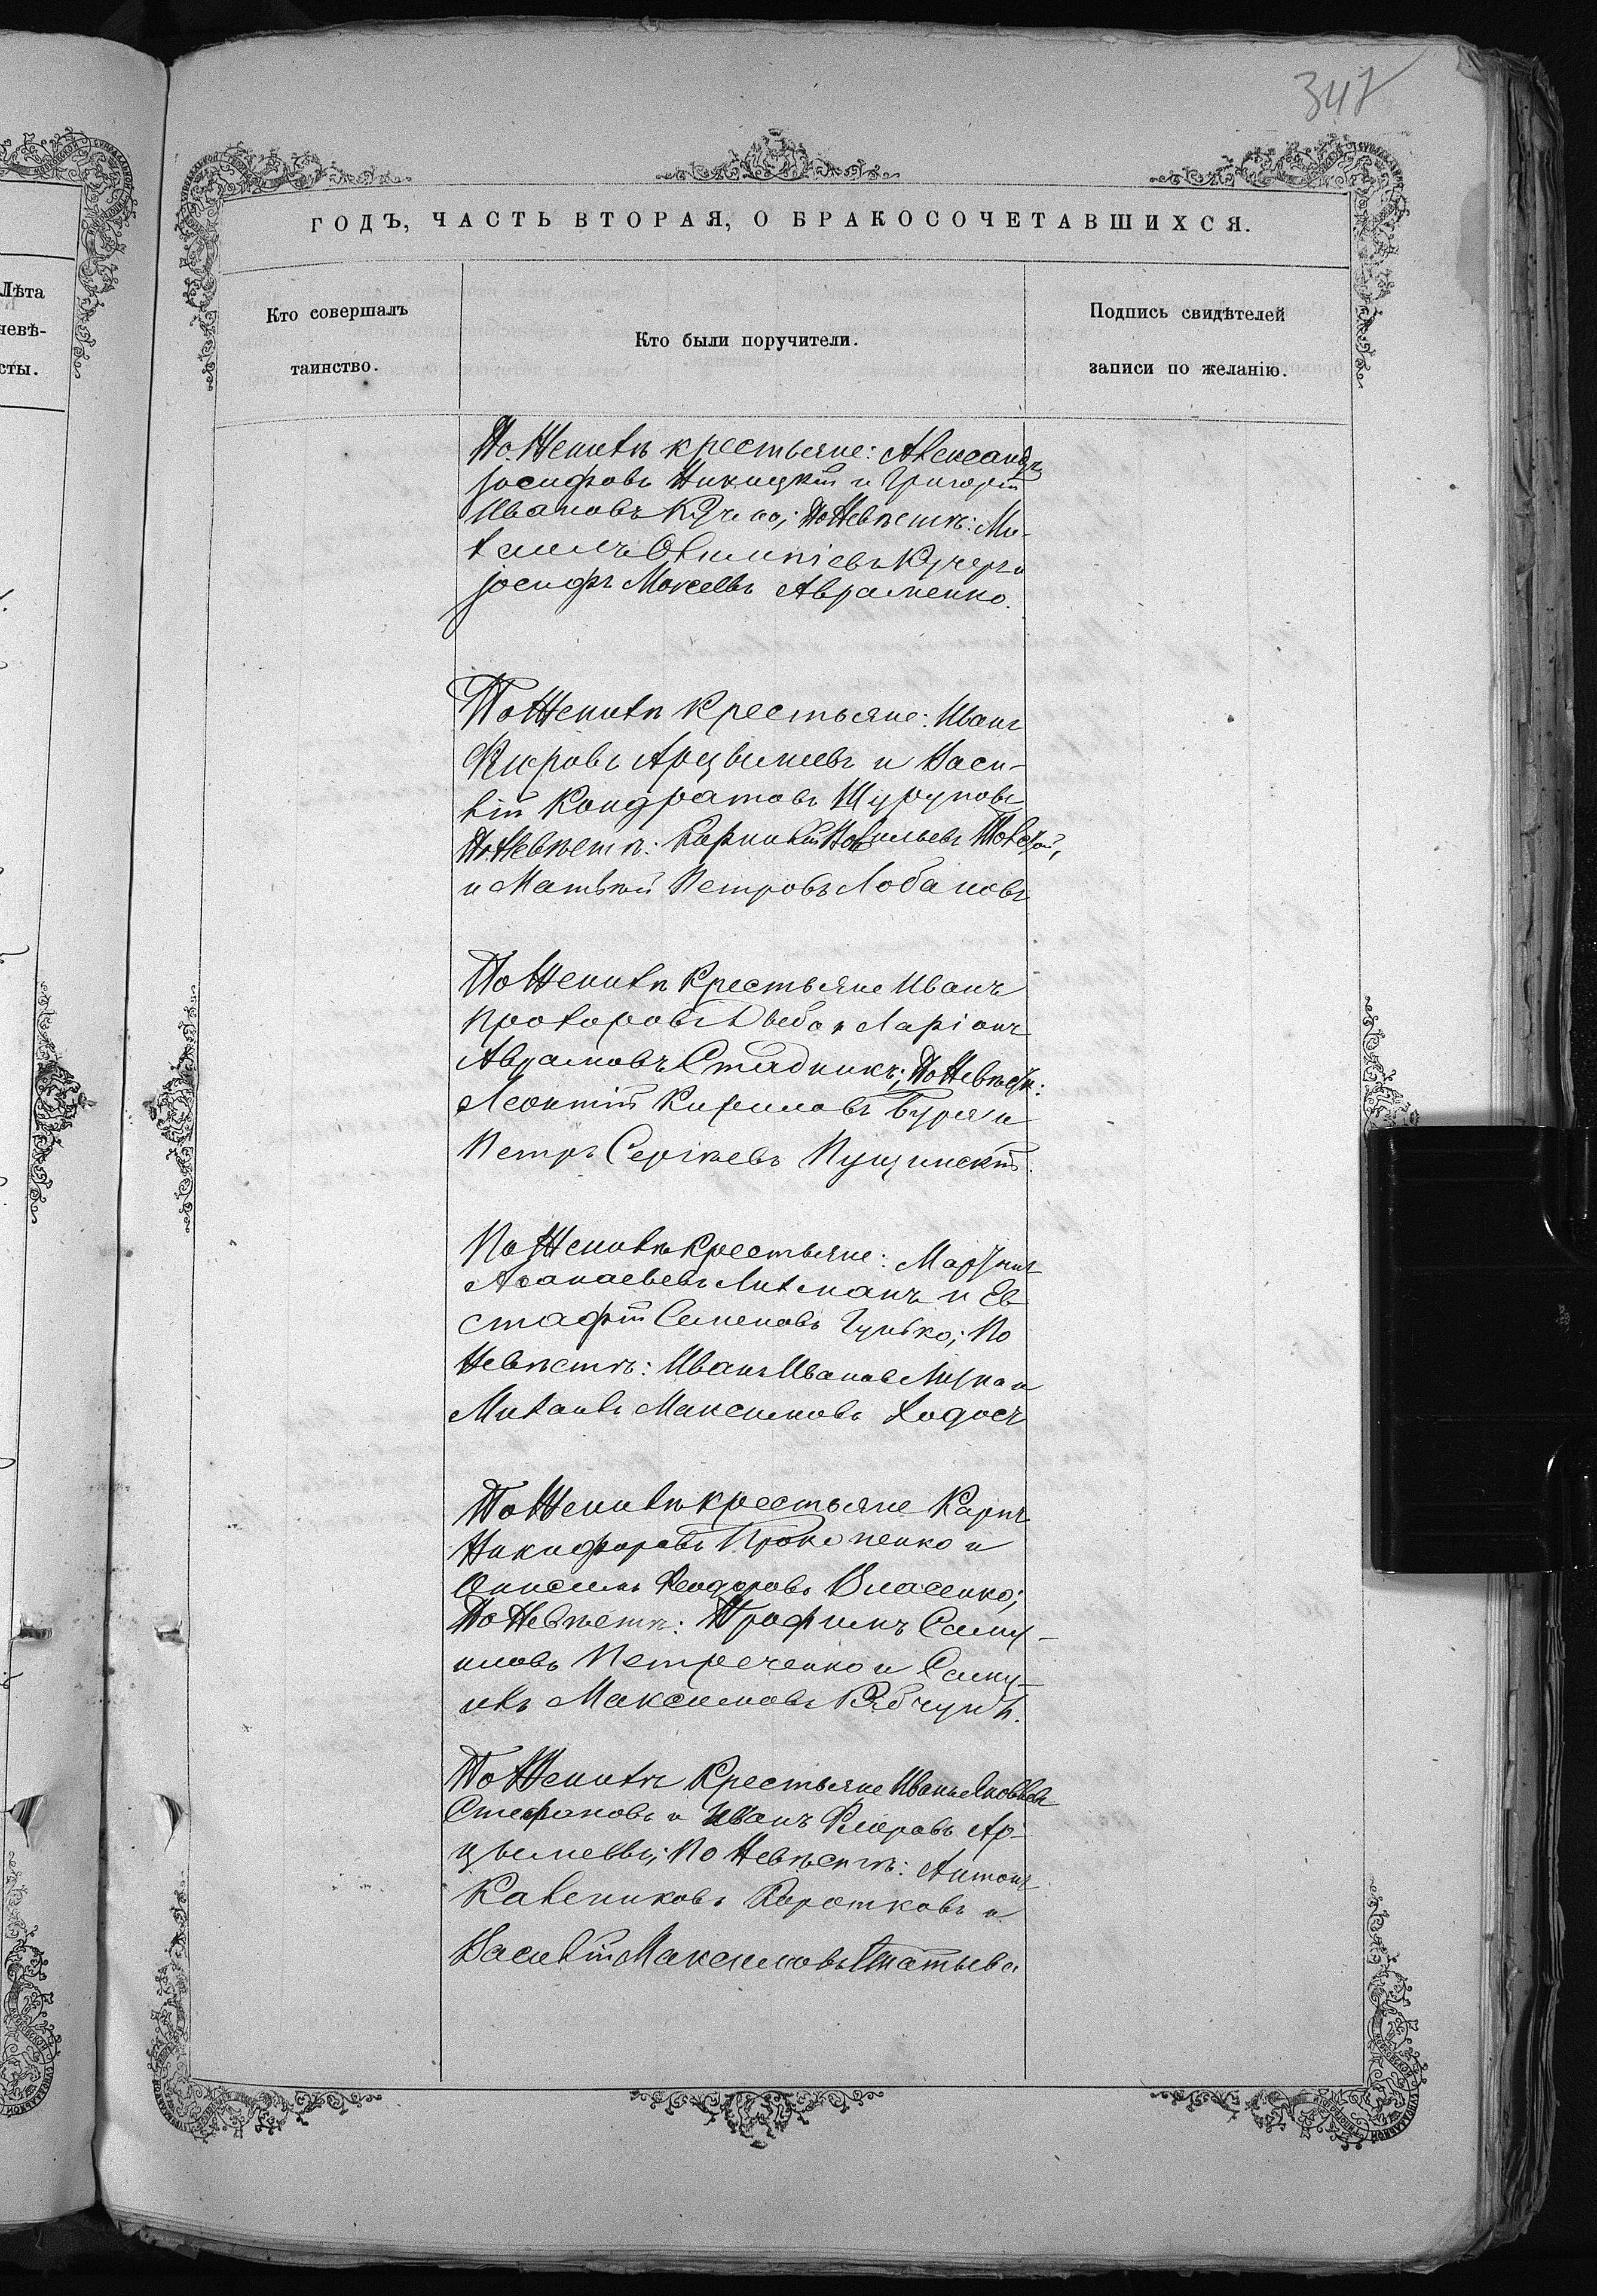 347
ГОДЪ, ЧАСТЬ ВТОРАЯ, О БРАКОСОЧЕТАВШИХСЯ.
Лѣта
невѣ-
сты.
Кто совершалъ
таинство.
Кто были поручители.
Подпись свидѣтелей
записи по желанію.
По Женихѣ крестьяне: Александръ
Іосифовъ Никицкій и Григорій
Ивановъ; По Невѣстѣ: Ми-
хаилъ Кучеръ и
Іосифъ Моисеевъ Авраменко.
По Женихѣ Крестьяне: Иванъ
Фироровъ Арцыбишевъ и Васи-
лій Кондратовъ Шуруповъ
По Невѣстѣ: Корнилій Васильевъ
и Матвѣй Петровъ Лобановъ
По Женихѣ Крестьяне Иванъ
Прохоровъ Ларіонъ
Аврамовъ Стадникъ; По Невѣстѣ:
Леонтій Кириловъ Буря и
Петръ Сергѣевъ Пущинскій.
По Женихѣ Крестьяне: Мартинъ
Лихманъ и Ев-
стафій Семеновъ Гунько; По
Невѣстѣ: Иванъ Ивановъ и
Михаилъ Максимовъ Ходосъ
По Женихѣ крестьяне Карпъ
Никифоровъ Прокопенко и
Онисимъ Феодоровъ Власенко;
По Невѣстѣ: Трофимъ Саму-
иловъ Петреченко и Саму-
илъ Максимовъ Рябчунъ.
По Женихѣ Крестьяне Иванъ Яковлевъ
Стефановъ и Иванъ Ар-
цы; По Невѣстѣ: Антонъ
Калениковъ Коротковъ и
Василій Максимовъ